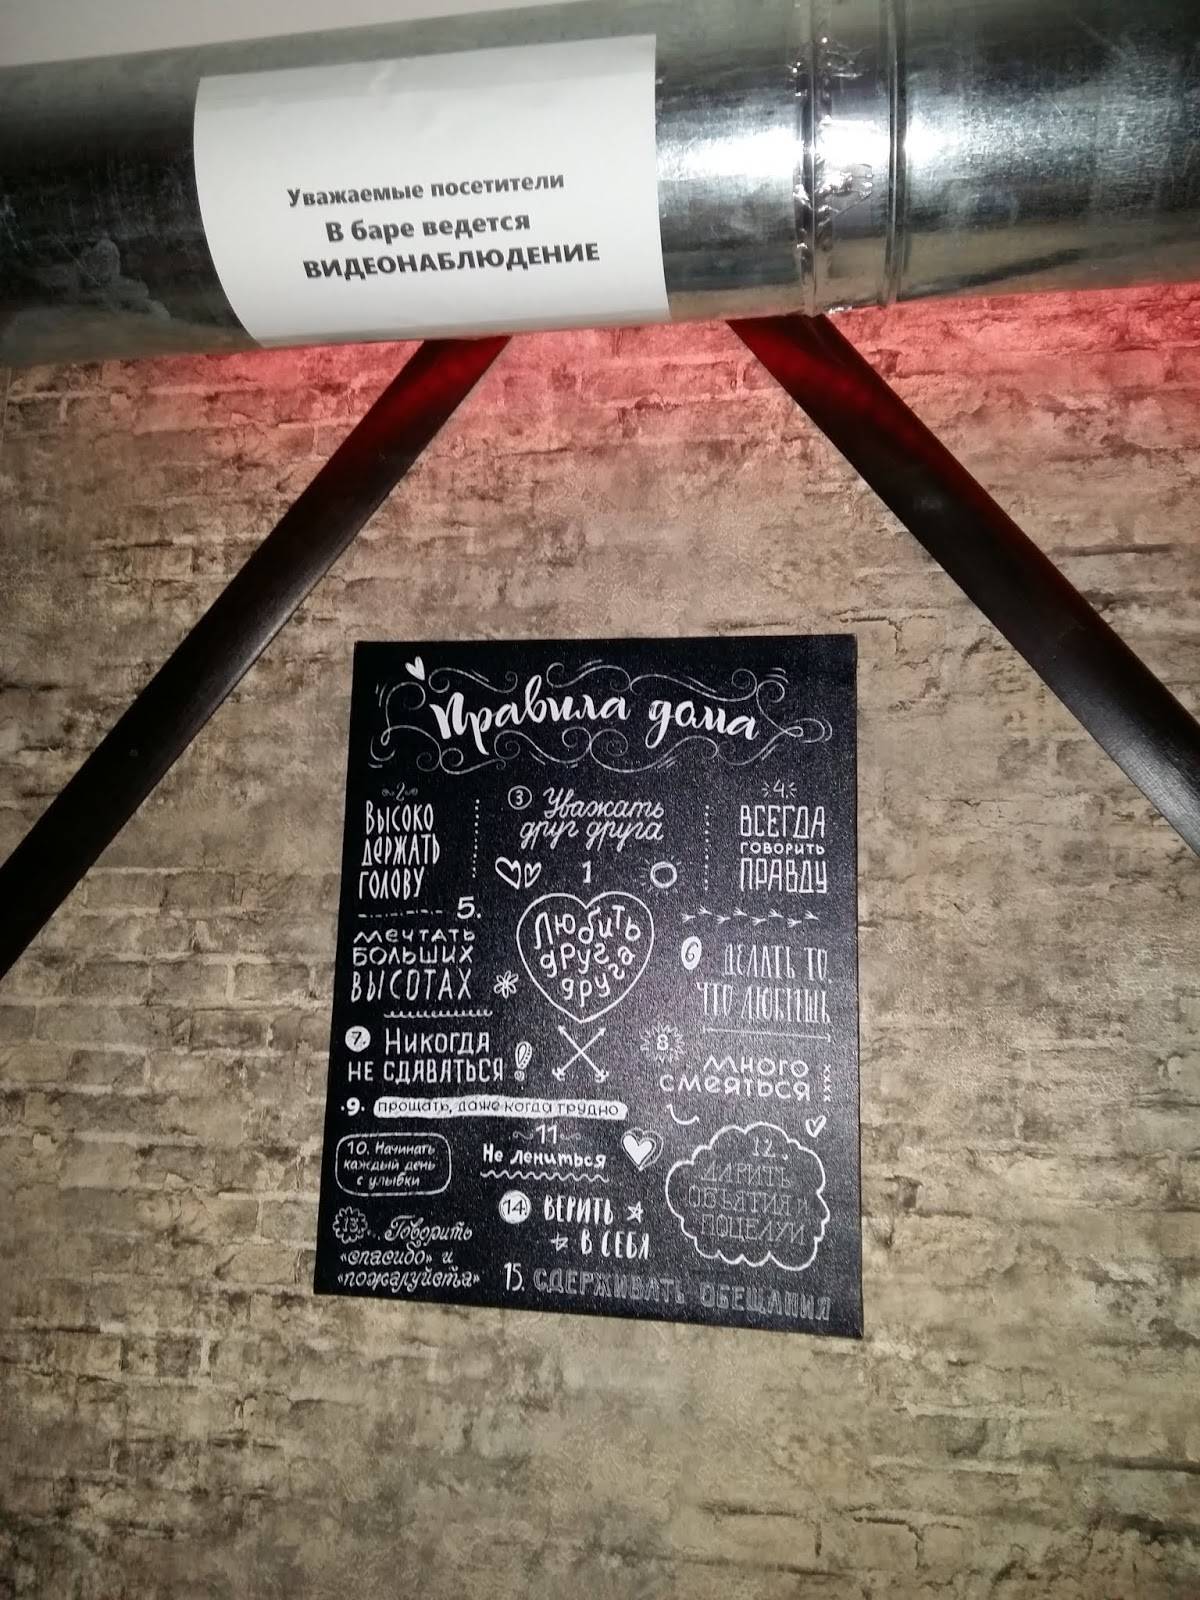 Уважаемые посетители
В баре ведется
ВИДЕОНАБЛЮДЕНИЕ
Правила дома
2
ВЫСОКО
ДЕРЖАТЬ
ГОЛОВУ
3 Уважать
друг друга
4.
ВСЕГДА
ГОВОРИТЬ
ПРАВДУ
1
Любить
друг
друга
5.
МЕЧТАТЬ
БОЛЬШИХ
ВЫСОТАХ
6 ДЕЛАТЬ ТО,
ЧТО ЛЮБИШЬ
7. НИКОГДА
НЕ СДАВАТЬСЯ!
8.
МНОГО
СМЕЯТЬСЯ
9. прощать, даже когда трудно
10. Начинать
каждый день
с улыбки
11
Не лениться
12.
ДАРИТЬ
ОБЪЯТИЯ И
ПОЦЕЛУИ
13. Говорить
«спасибо» и
«пожалуйста»
14. ВЕРИТЬ
В СЕБЯ
15. СДЕРЖИВАТЬ ОБЕЩАНИЯ